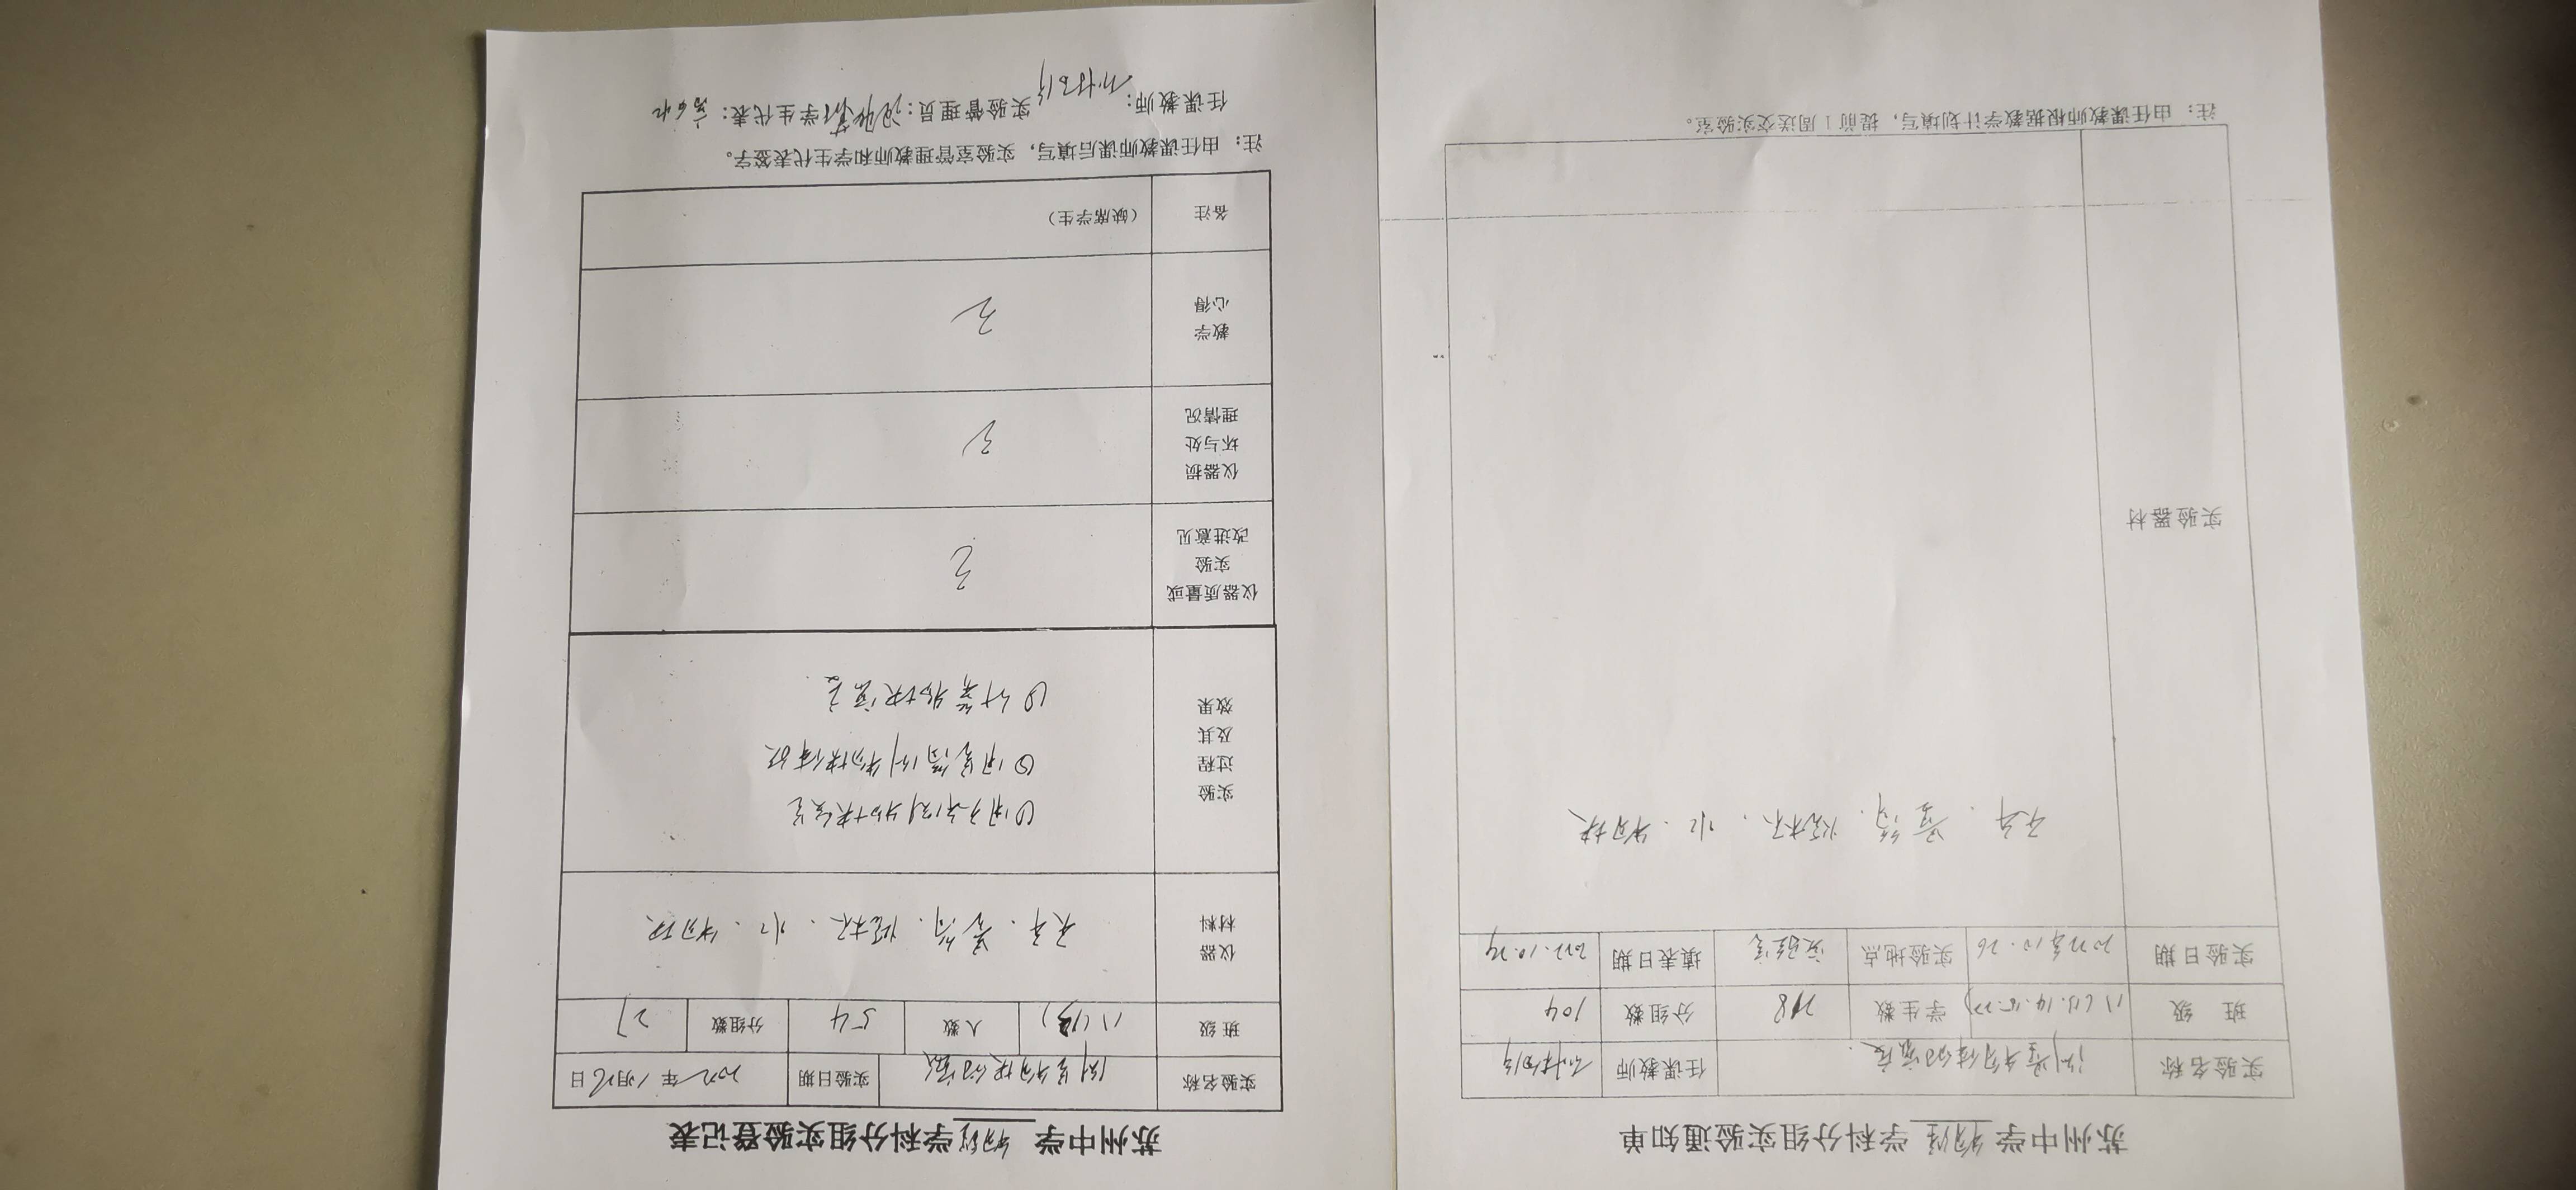 苏州中学 物理 学科分组实验通知单
实验名称 测量物体的密度. 任课教师
班 级 11(13.14.15.22) 学生数 218 分组数 104
实验日期 2022年10.26 实验地点 实验室 填表日期 2022.10.24
实验器材
天平. 量筒. 烧杯. 水. 物块
注: 由任课教师根据教学计划填写, 提前1周送交实验室。
苏州中学 物理 学科分组实验登记表
实验名称 测量物块的密度 实验日期 2022年10月26日
班级 11(13) 人数 54 分组数 27
仪器材料 天平. 量筒. 烧杯. 水. 物块
实验过程及其效果
①用天平测物块质量
②用量筒测物块体积
③计算物块密度.
仪器质量或实验改进意见 无
仪器损坏与处理情况 无
教学心得 无
备注 (缺席学生)
注: 由任课教师课后填写, 实验室管理教师和学生代表签字。
任课教师: 实验管理员: 学生代表: